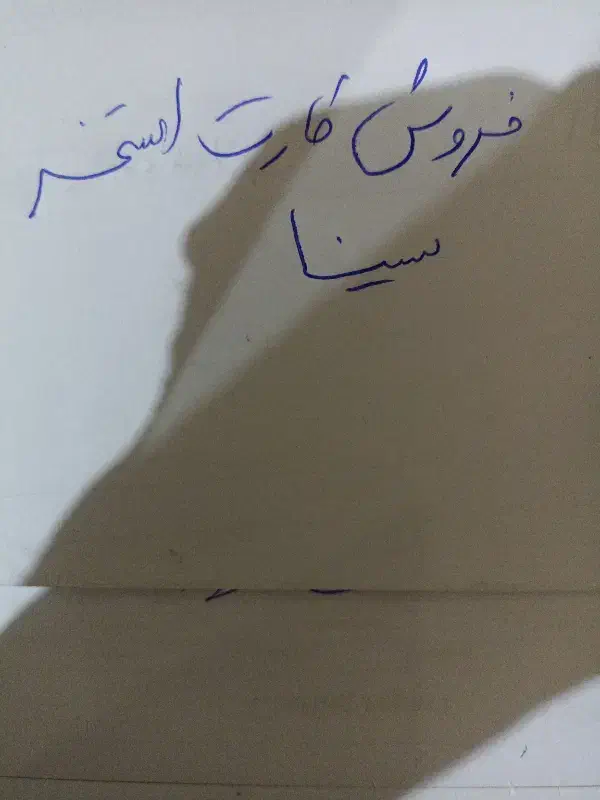 فروش کارت استخر
سینا